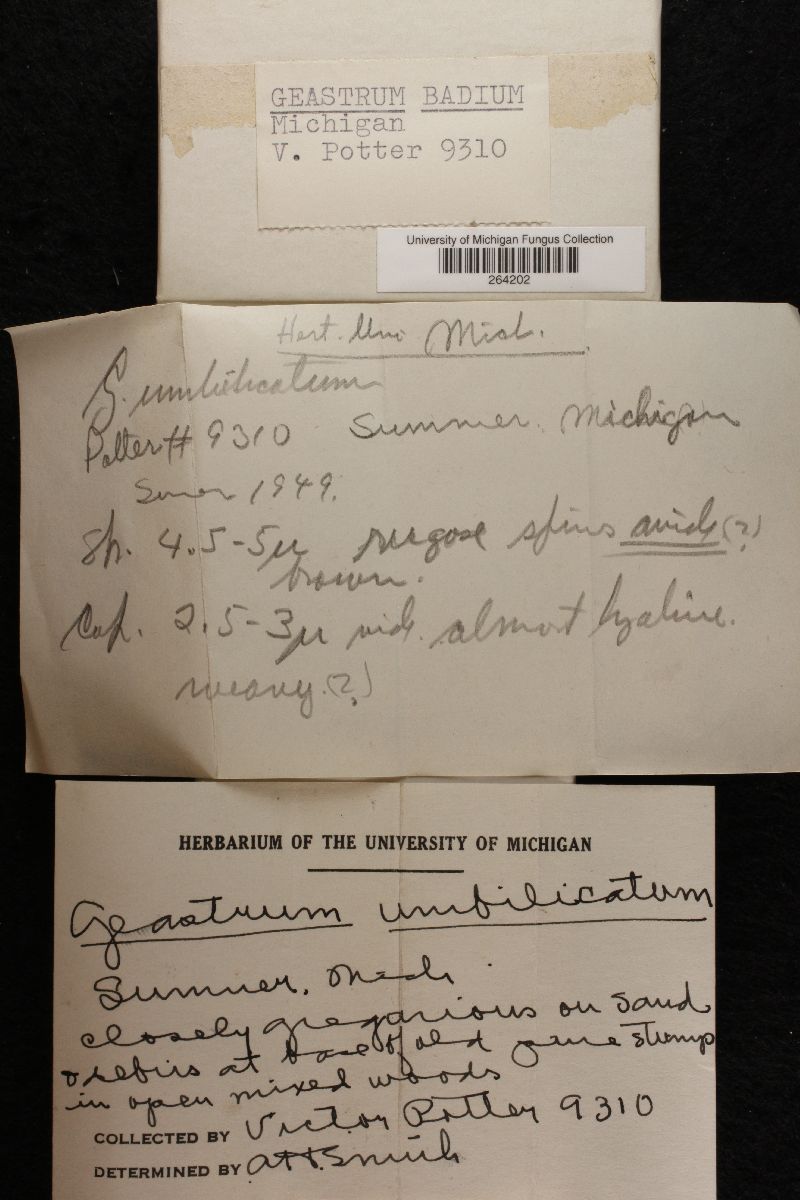 GEASTRUM BADIUM
Michigan
V. Potter 9310
University of Michigan Fungus Collection
264202
Herb. Univ Mich.
G. umbilicatum
Potter # 9310 Sumner, Michigan
1949.
Sp. 4.5-5µ rugose spins (?)
brown.
Cap. 2.5-3µ almost hyaline.
(?)
HERBARIUM OF THE UNIVERSITY OF MICHIGAN
Geastrum umbilicatum
Sumner, Mich.
closely gregarious on sand
& debris at base of old pine stump
in open mixed woods
COLLECTED BY Victor Potter 9310
DETERMINED BY A H Smith